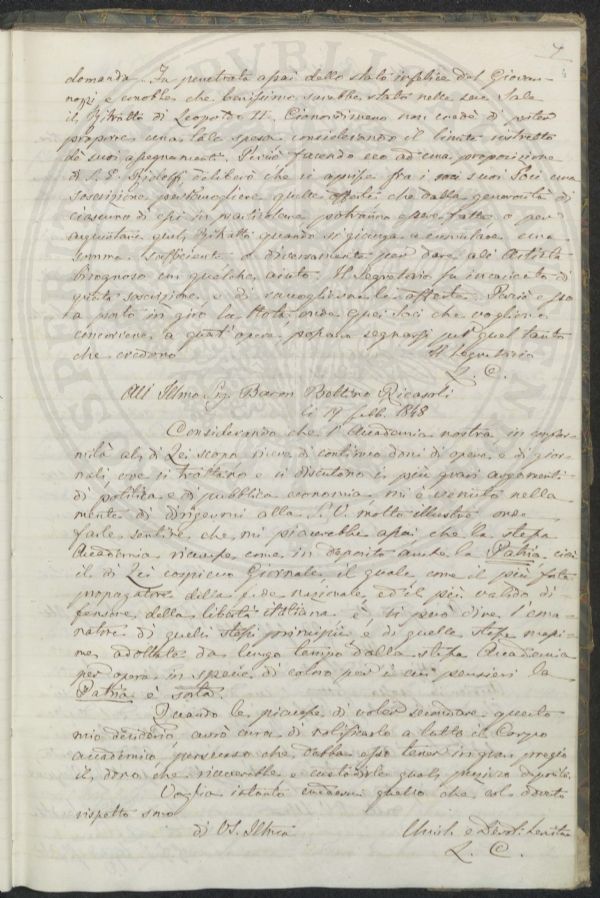 7
domanda. Fu penetrata assai dello stato infelice del Giovan-
nozzi e conobbe che benissimo sarebbe stato nelle sue Sale
il Ritratto di Leopoldo II. Cionondimeno non credè di poter
proporre una tale spesa considerando il limite ristretto
de' suoi assegnamenti. Perciò facendo eco ad una proposizione
di S. E. Ridolfi deliberò che si aprisse fra i suoi Soci una
soscrizione per raccogliere quelle offerte che dalla generosità di
ciascuno di essi in particolare potranno essere fatte o per
acquistare quel Ritratto quando si giunga a cumulare una
somma sufficiente o diversamente per dare all'Artista
bisognoso un qualche aiuto. Il Segretario fu incaricato di
questa soscrizione, e di raccogliere le offerte. Perciò esso
a posto in giro la Nota onde quei Soci che vogliono
concorrere a quest'opera possano segnarsi per quel tanto
che credono
Il Segretario
L. C.
All'Illmo Sig. Baron Bettino Ricasoli
li 19 febb. 1848
Considerando che l'Accademia nostra in confor-
mità al di Lei scopo riceve di continuo doni di opere e di gior-
nali, ove si trattano e si discutono i più gravi argomenti
di politica e di pubblica economia, mi è venuto nella
mente di dirigermi alla S. V. molto illustre onde
farle sentire che mi piacerebbe assai che la stessa
Accademia ricevesse come in deposito anche la Patria, cioè
il di Lei cospicuo Giornale, il quale, come il più forte
propagatore della fede nazionale, ed il più valido di-
fensore della libertà italiana è si può dire l'ema-
natore di quelli stessi principii e di quelle stesse massi-
me adottate da lungo tempo dalla stessa Accademia
per opera in specie di coloro per i cui pensieri la
Patria è sorta.
Quando le piacesse di voler secondare questo
mio desiderio avrà cura di notificarlo a tutto il Corpo
accademico, persuaso che debba esso tenere in gran pregio
il dono che riceverebbe e custodirlo qual prezioso deposito.
Voglia intanto credermi quello che col dovuto
rispetto sono
di VS. Illma
Umil. e Devot. Servitore
L. C.